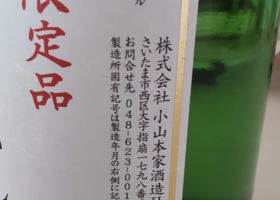 限定品
株式会社 小山本家酒造
さいたま市西区大字指扇一七九八番
お問合せ先 048-623-001
製造所固有記号は製造年月の右側に記
ル